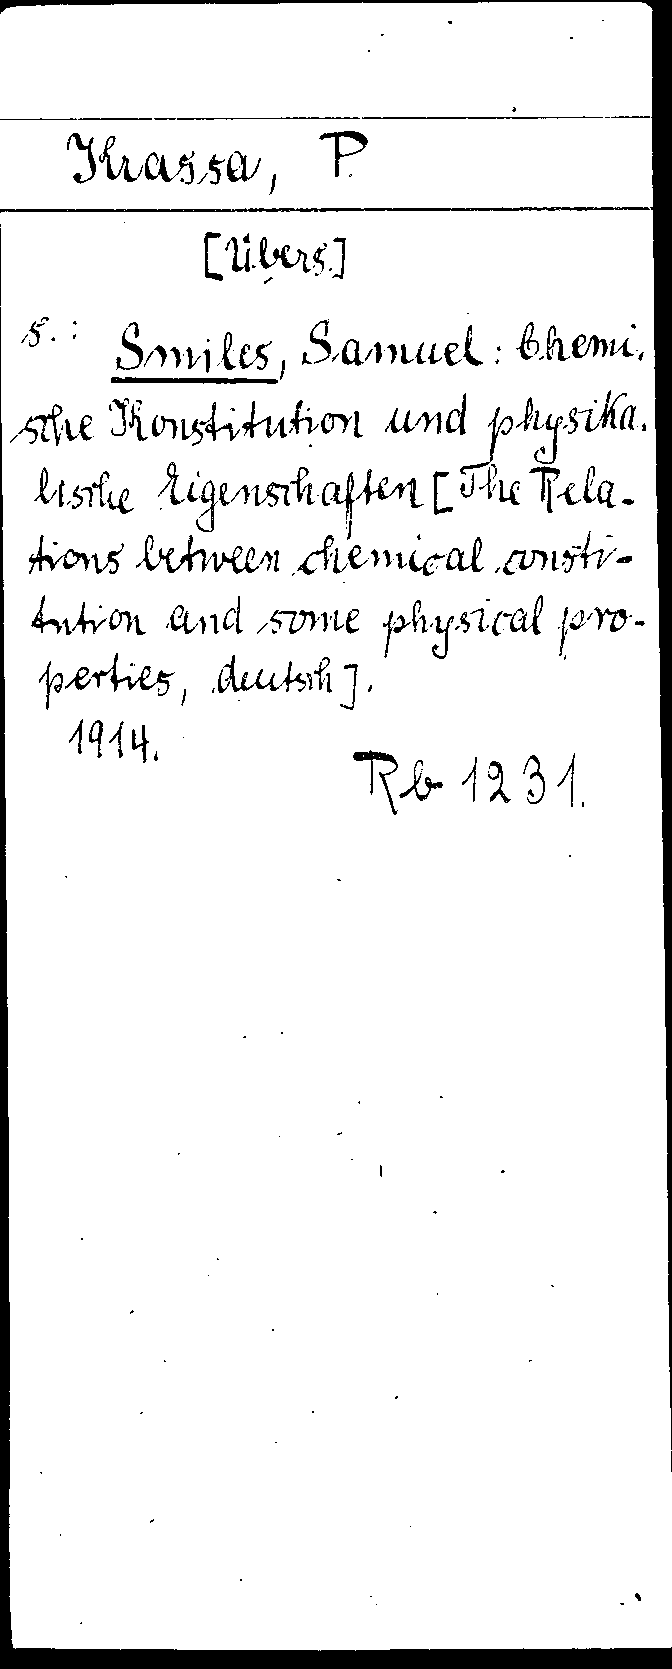 Krassa, P.
[Übers.]
s.: Smiles, Samuel: Chemi-
sche Konstitution und physika-
lische Eigenschaften [The Rela-
tions between chemical consti-
tution and some physical pro-
perties, deutsch].
1914.
Rb 1231.